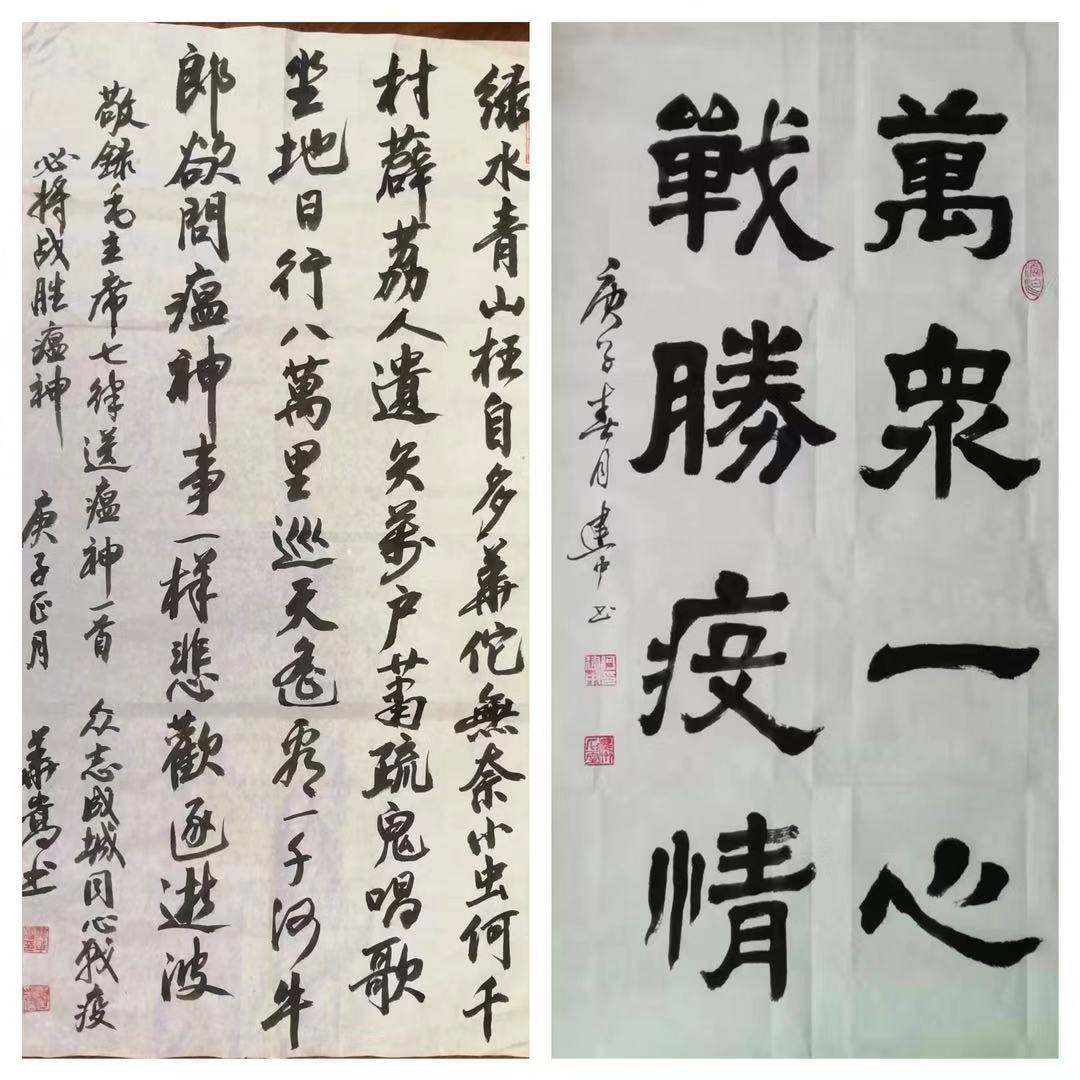 绿水青山枉自多華佗無奈小虫何千
村薜荔人遺矢萬户萧疏鬼唱歌
坐地日行八萬里巡天遥看一千河牛
郎欲問瘟神事一样悲歡逐逝波
敬録毛主席七律送瘟神一首 众志成城同心战疫
必将战胜瘟神 庚子正月 書
萬衆一心
戰勝疫情
庚子春月建中书